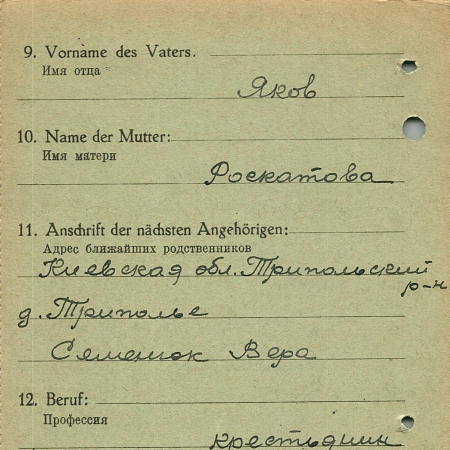 9. Vorname des Vaters.
Имя отца
Яков
10. Name der Mutter:
Имя матери
Роскатова
11. Anschrift der nächsten Angehörigen:
Адрес ближайших родственников
Киевская обл. Трипольский
р-н
д. Триполье
Семенюк Вера
12. Beruf:
Профессия
крестьянин